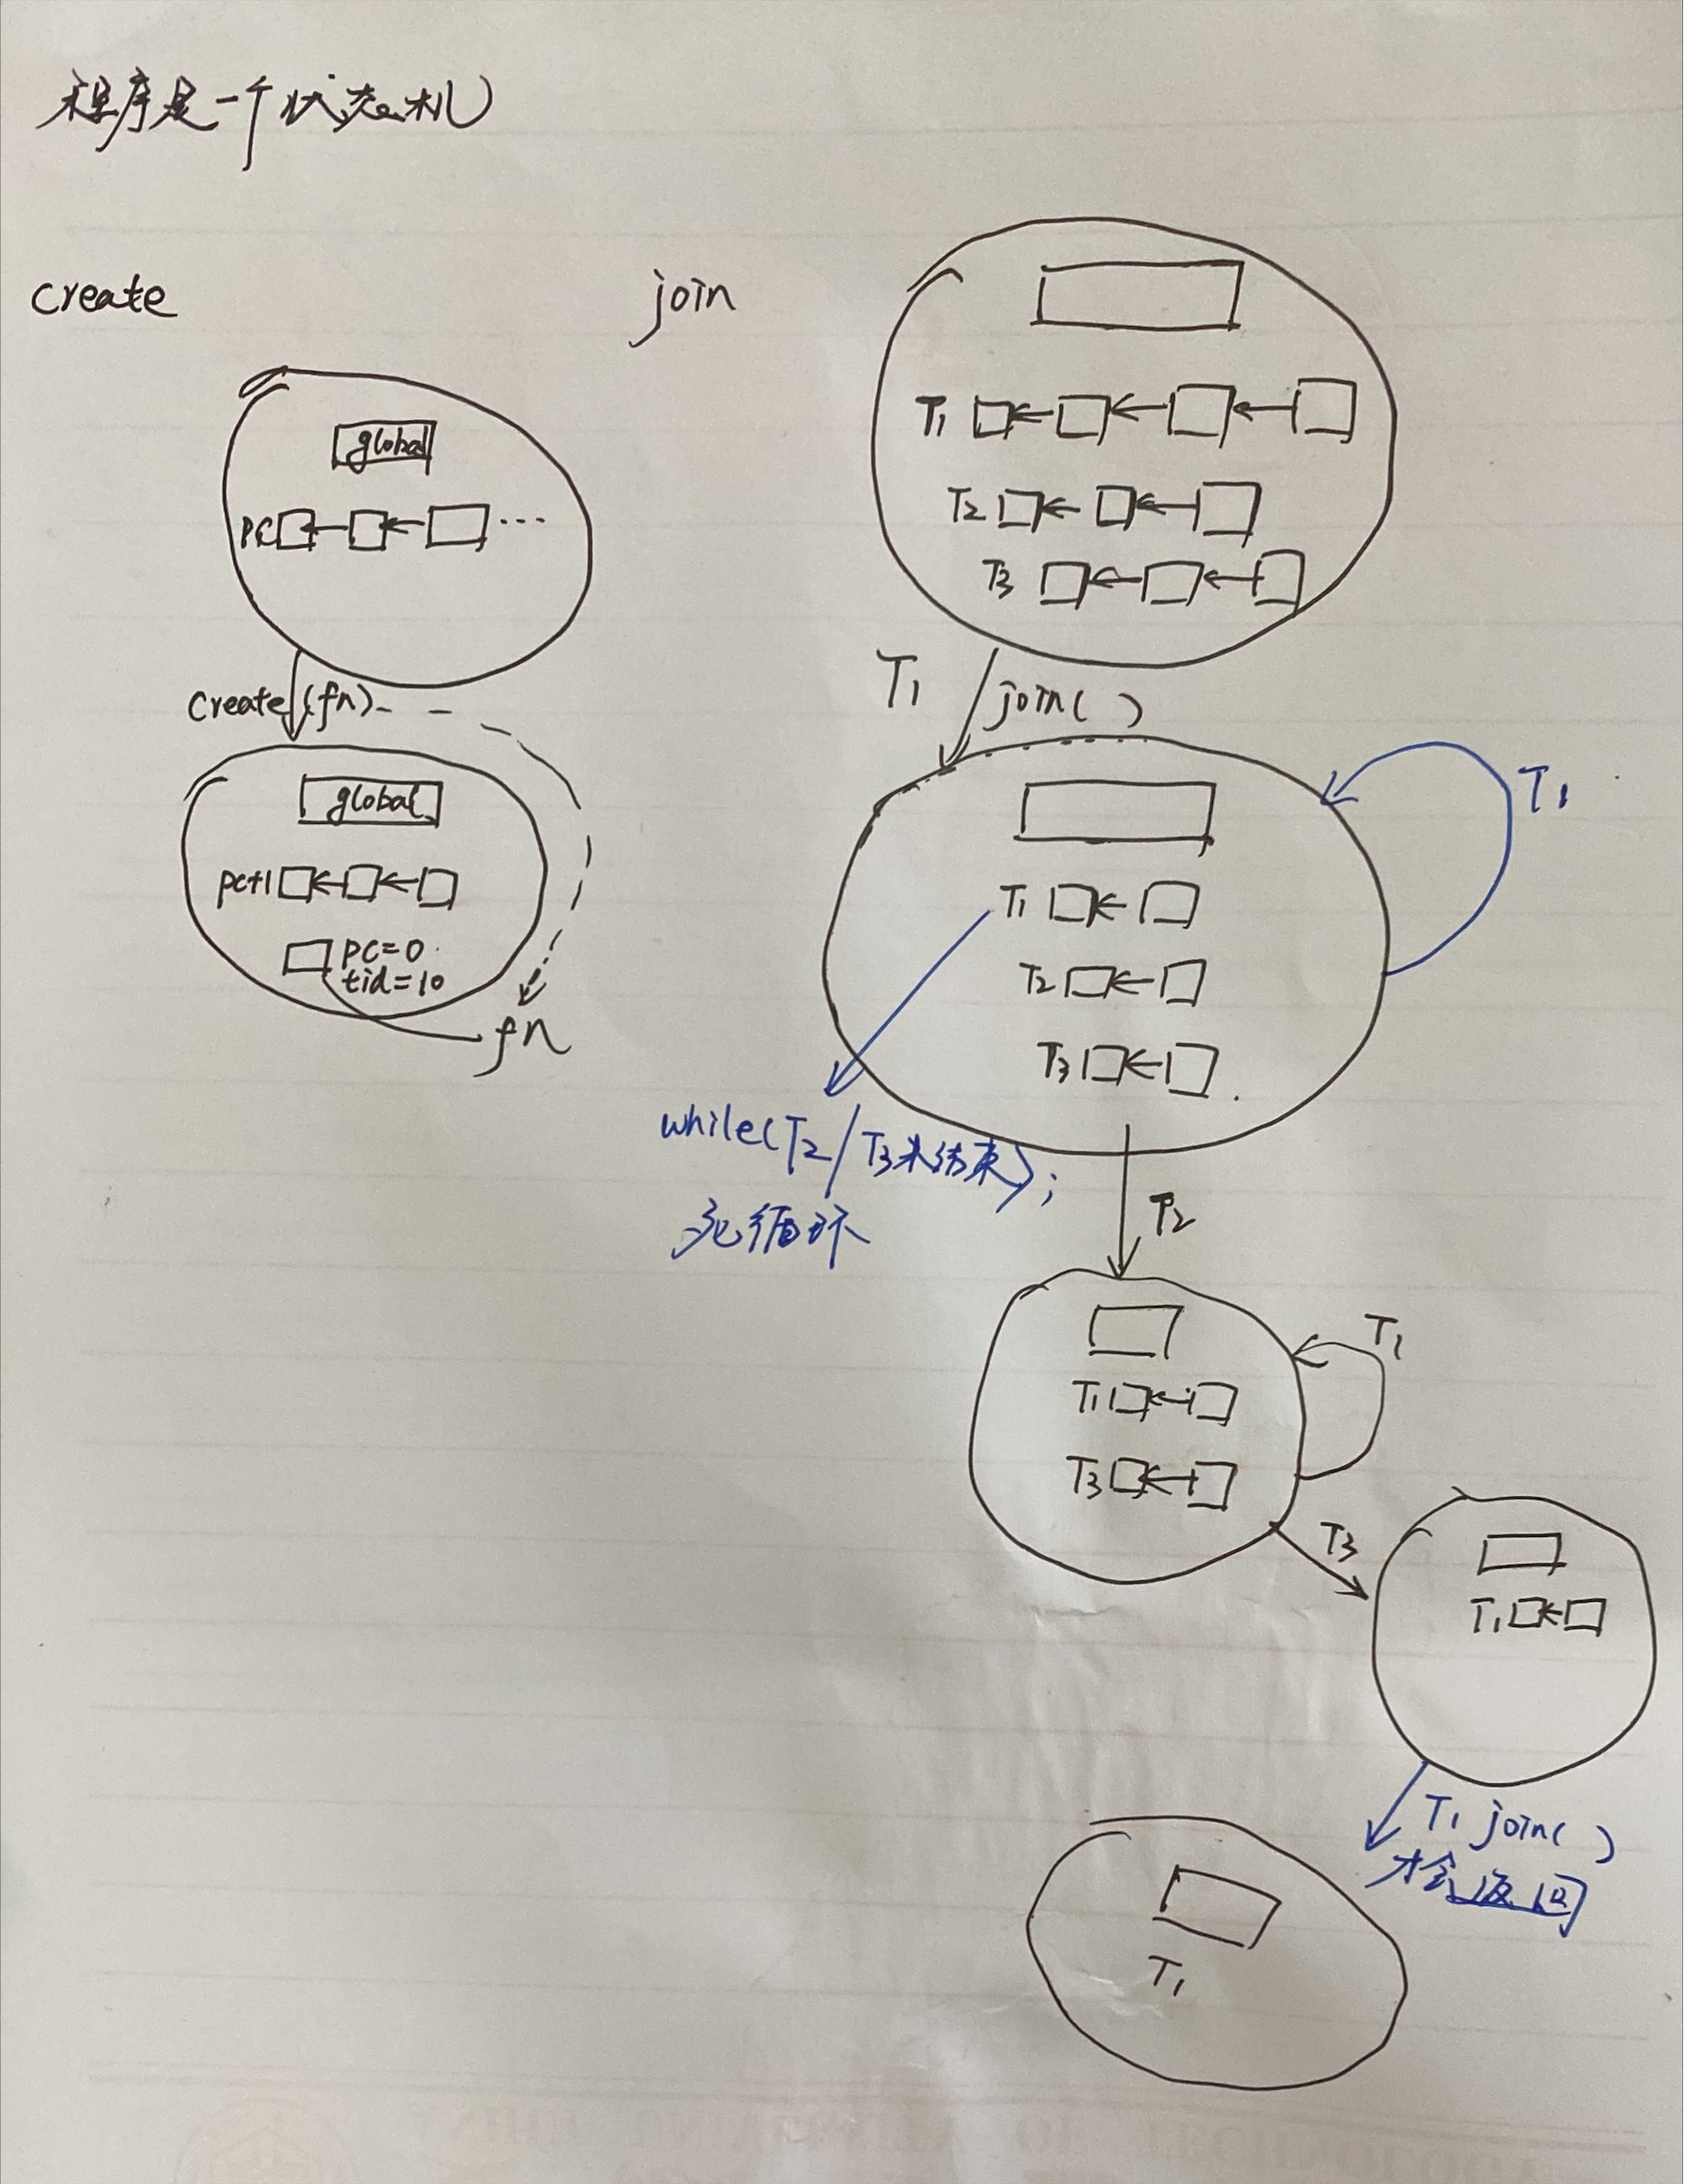 程序是一个状态机
create
global
PC
...
create(fn)
global
pc+1
pc=0
tid=10
fn
join
T1
T2
T3
T1 join( )
T1
T1
T2
T3
while(T2/T3未结束);
死循环
T2
T1
T1
T3
T3
T1
T1 join( )
才会返回
T1